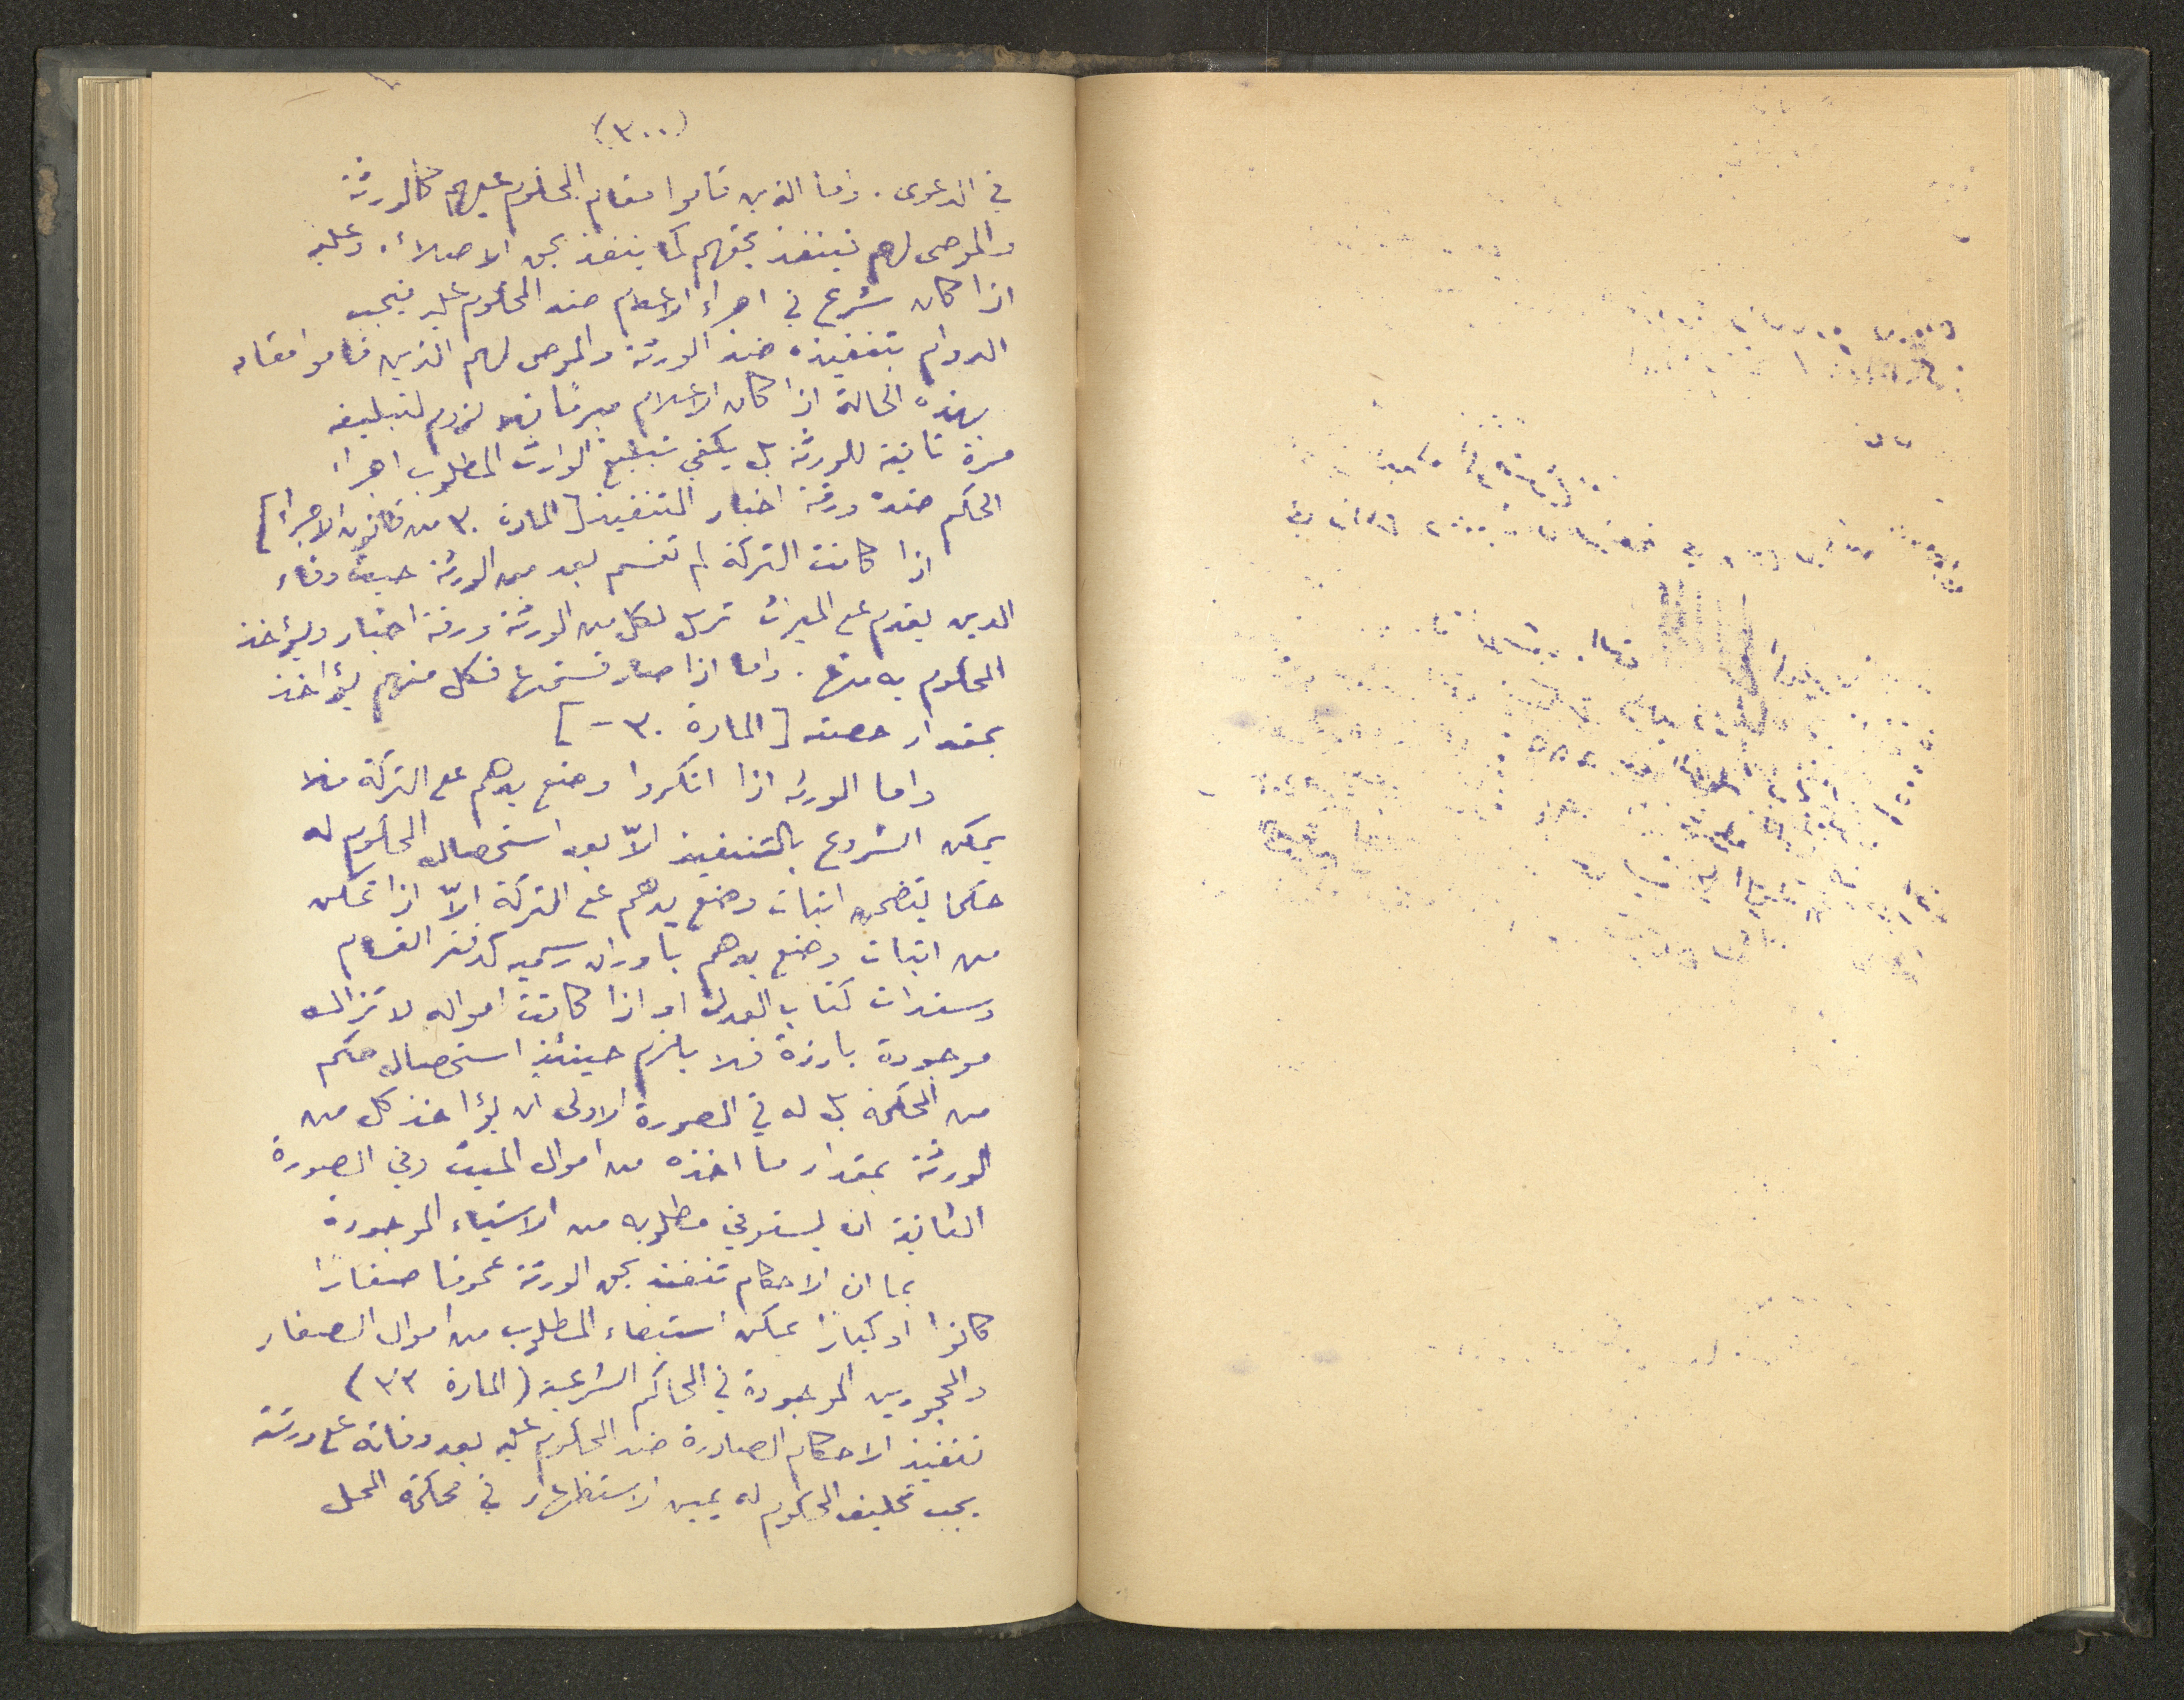 (٣٠٠)
في الدعوى. واما الذين قاموا مقام المحكوم عليهم كالورثة
والموصى لهم فينفذ بحقهم كما ينفذ بحق الاصلاء. وعليه
اذا كان شرع في اجراء الاعلام ضد المحكوم عليه فيجب
الدوام بتنفيذه ضد الورثة والموصى لهم الذين قاموا مقامه
بهذه الحالة اذا كان الاعلام مبرماً فلا لزوم لتبليغه
مرة ثانية للورثة بل يكفي تبليغ الوارث المطلوب اجراء
الحكم ضده ورقة اخبار التنفيذ [المادة ٣٠ من قانون الاجراء]
اذا كانت التركة لم تقسم بعد بين الورثة حيث وفاء
الدين يقدم على الميراث ترسل لكل من الورثة ورقة اخبار ويؤخذ
المحكوم به منها. واما اذا صار قسمتها فكل منهم يؤاخذ
بمقدار حصته [المادة ٣٠ -]
واما الورثه اذا انكروا وضع يدهم على التركة فلا
يمكن الشروع بالتنفيذ الاّ بعد استحصال المحكوم له
حكما يتضمن اثبات وضع يدهم على التركة الاّ اذا تمكن
من اثبات وضع يدهم باوراق رسميه كدفتر القسام
وسندات كتاب العدل او اذا كانت امواله لا تزال
موجودة بارزة فلا يلزم حينئذ استحصال حكم
من المحكمة بل له في الصورة الاولى ان يؤاخذ كل من
الورثة بمقدار ما اخذه من اموال الميت وفي الصورة
الثانية ان يستوفي مطلوبه من الاشياء الموجودة
بما ان الاحكام تنفذ بحق الورثة عموما صغارًا
كانوا او كبارًا يمكن استيفاء المطلوب من اموال الصغار
والمحجورين الموجودة في المحاكم الشرعية (المادة ٣٣)
تنفيذ الاحكام الصادرة ضد المحكوم عليه بعد وفاته على ورثته
يجب تحليف المحكوم له يمين الاستظهار في محكمة المحل